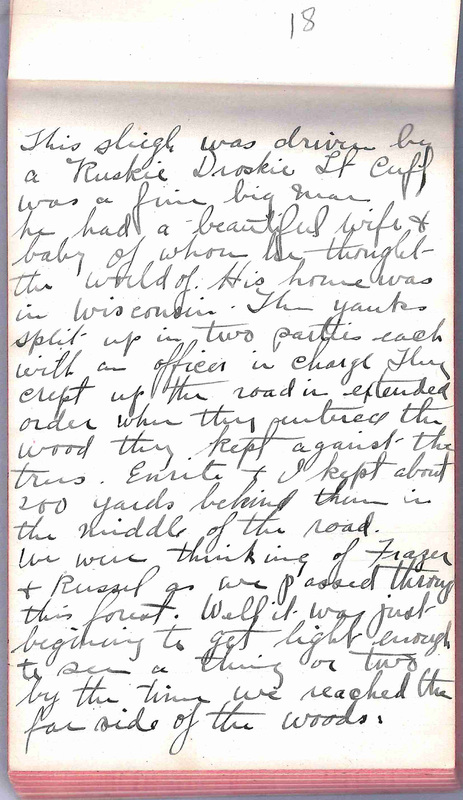 18
This sleigh was driven by
a Ruskie Droskie Lt Cuff
was a fine big man
he had a beautiful wife &
baby of whom he thought
the world of. His home was
in Wisconsin. The yanks
split up in two parties each
with an officer in charge They
crept up the road in extended
order when they entered the
wood they kept against the
trees. Enrite & I kept about
200 yards behind them in
the middle of the road.
We were thinking of Frazer
& Russel as we passed throug
this forest. Well it was just
begining to get light enough
to see a thing or two
by the time we reached the
far side of the woods.